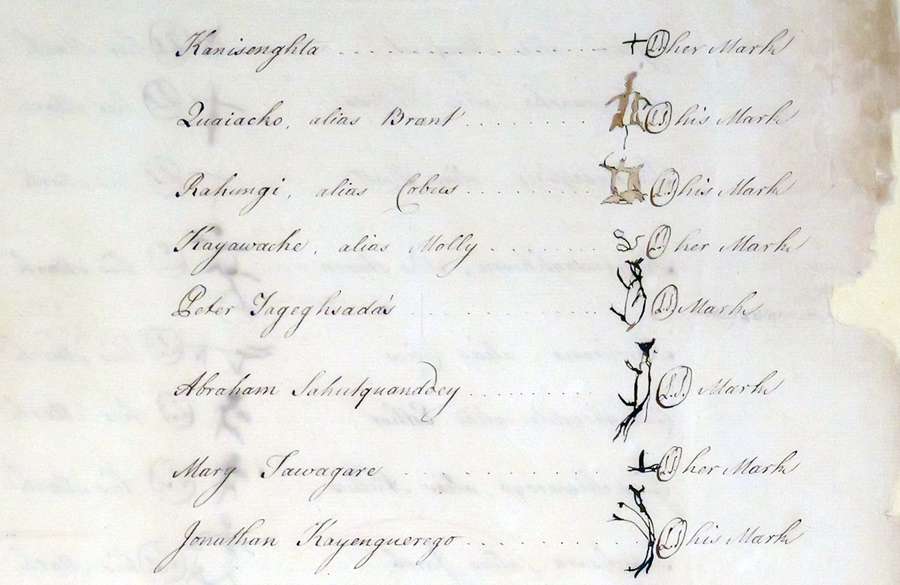 Kanisenghta . . . . . . . . . . . . . . . . + LS her Mark
Quaiacko, alias Brant . . . . . . . . . . LS his Mark
Rahungi, alias Cobus . . . . . . . . . . LS his Mark
Kayawache, alias Molly . . . . . . . . LS her Mark
Peter Tageghsadas . . . . . . . . . . . . LS Mark
Abraham Sahutquanddey . . . . . . . . L.S. Mark
Mary Tawagare . . . . . . . . . . . . . . + LS her Mark
Jonathan Kayenguerego . . . . . . . . LS his Mark